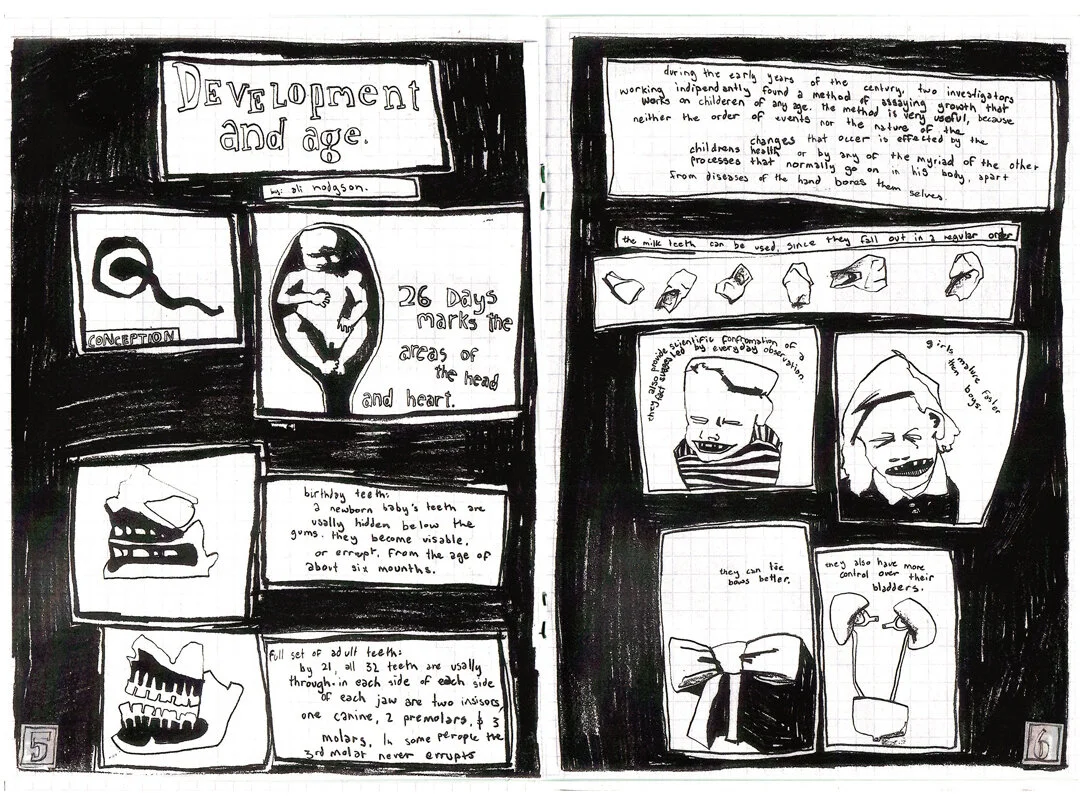 DEVELOpment
and age.
by: ali hodgson.
CONCEPTION
26 Days
marks the
areas of
the head
and heart.
birthday teeth:
a newborn baby's teeth are
usally hidden below the
gums. they become visable,
or errupt, from the age of
about six mounths.
Full set of adult teeth:
by 21, all 32 teeth are usally
through. in each side of each side
of each jaw are two insisors,
one canine, 2 premolars, & 3
molars. In some perople the
3rd molar never errupts
5
during the early years of the century, two investigators
working indipendantly found a method of assaying growth that
works on childeren of any age. the method is very useful, because
neither the order of events nor the nature of the
changes that occer is effected by the
childrens health or by any of the myriad of the other
processes that normally go on in his body, apart
from diseases of the hand bones them selves.
the milk teeth can be used, since they fall out in a regular order
they also provide scientific confromation of a
fact suggested by everyday observation
girls mature faster
then boys.
they can tie
bows better.
they also have more
control over their
bladders.
6